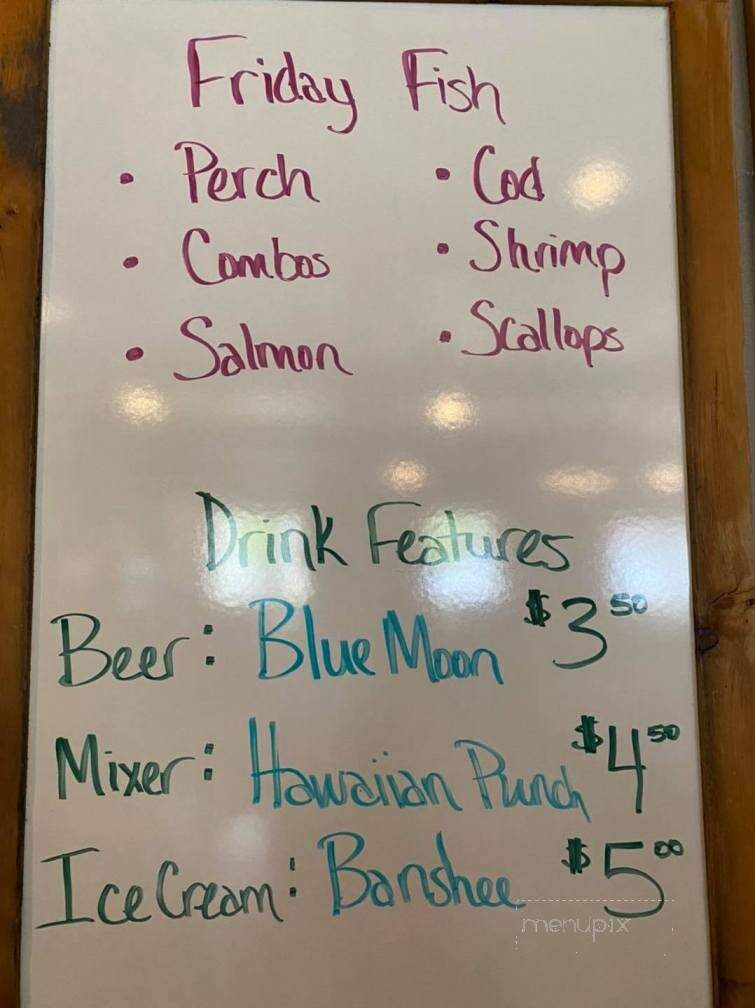 Friday Fish
• Perch
• Cod
• Combos
• Shrimp
• Salmon
• Scallops
Drink Features
Beer: Blue Moon $3.50
Mixer: Hawaiian Punch $4.50
Ice Cream: Banshee $5.00
menupix